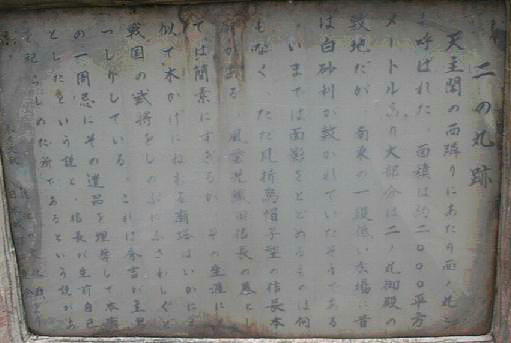 二の丸跡
天主閣の西隣りにあたり西ノ丸と
呼ばれた。面積は約二〇〇〇平方
メートルあり大部分は二ノ丸御殿の
敷地だが 南東の一段低い広場に昔
は白砂利が敷かれていたそうである
いまでは面影をとどめるものは何
もなく ただ風折烏帽子型の信長本
がある。風雲児織田信長の墓とし
ては簡素にすぎるが その生涯に
似て木かげにねむる廟塔はいかに
戦国の武将をしのぶにふさわしくど
っしりしている これは秀吉が主君
の一周忌にその遺品を埋葬して本廟
としたという説と、信長が生前自己
であるという説があ